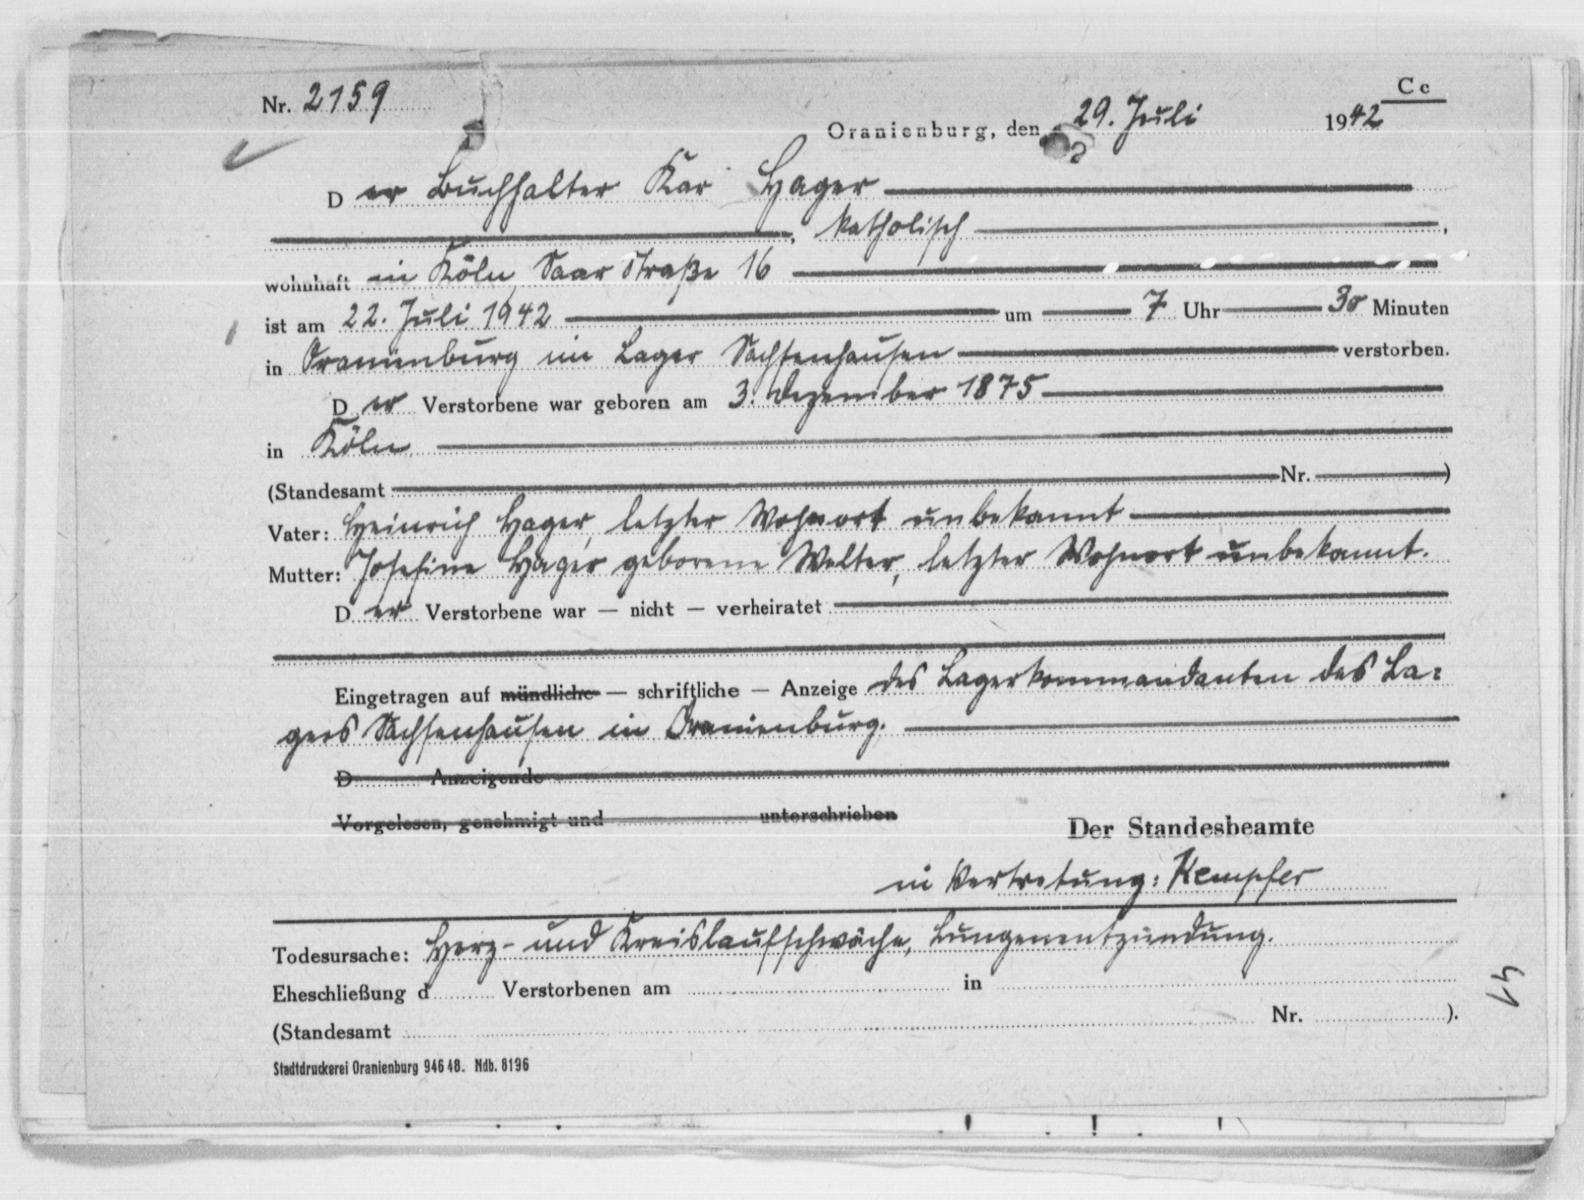 Cc
Nr. 2159
Oranienburg, den 29. Juli 1942
Der Buchhalter Kar Hager
, katholisch ,
wohnhaft in Köln, Saarstraße 16
ist am 22. Juli 1942 um 7 Uhr 30 Minuten
in Oranienburg im Lager Sachsenhausen verstorben.
Der Verstorbene war geboren am 3. Dezember 1875
in Köln
(Standesamt Nr. )
Vater: Heinrich Hager, letzter Wohnort unbekannt
Mutter: Josefine Hager geborene Welter, letzter Wohnort unbekannt.
Der Verstorbene war — nicht — verheiratet
Eingetragen auf mündliche — schriftliche — Anzeige des Lagerkommandanten des La=
gers Sachsenhausen in Oranienburg.
D Anzeigende
Vorgelesen, genehmigt und unterschrieben
Der Standesbeamte
in Vertretung: Kempfer
Todesursache: Herz- und Kreislaufschwäche, Lungenentzündung.
Eheschließung d Verstorbenen am in
(Standesamt Nr. ).
Stadtdruckerei Oranienburg 946 48. Ndb. 8196